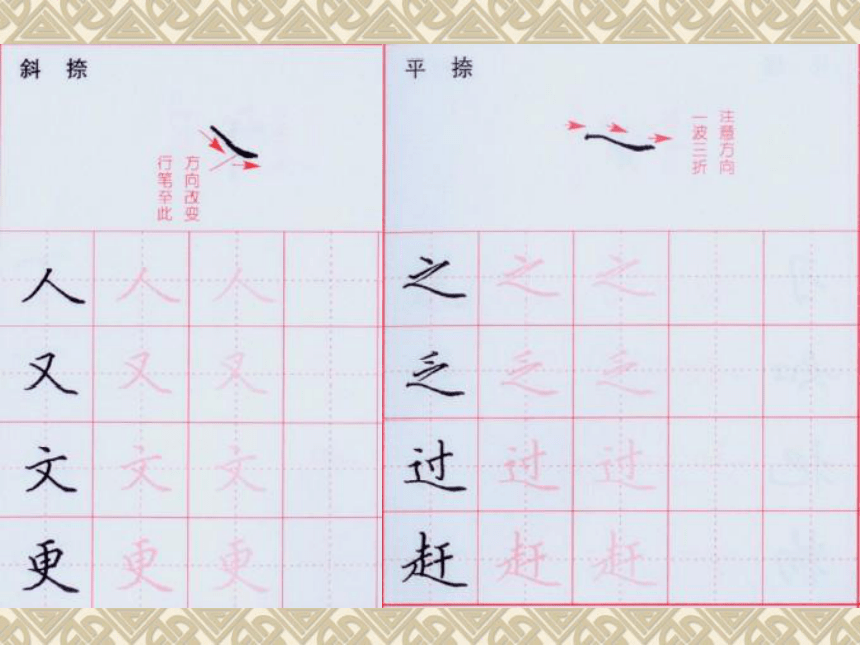 斜 捺
行笔至此
方向改变
人 人 人
又 又 又
文 文 文
更 更 更
平 捺
一波三折
注意方向
之 之 之
乏 乏 乏
过 过 过
赶 赶 赶